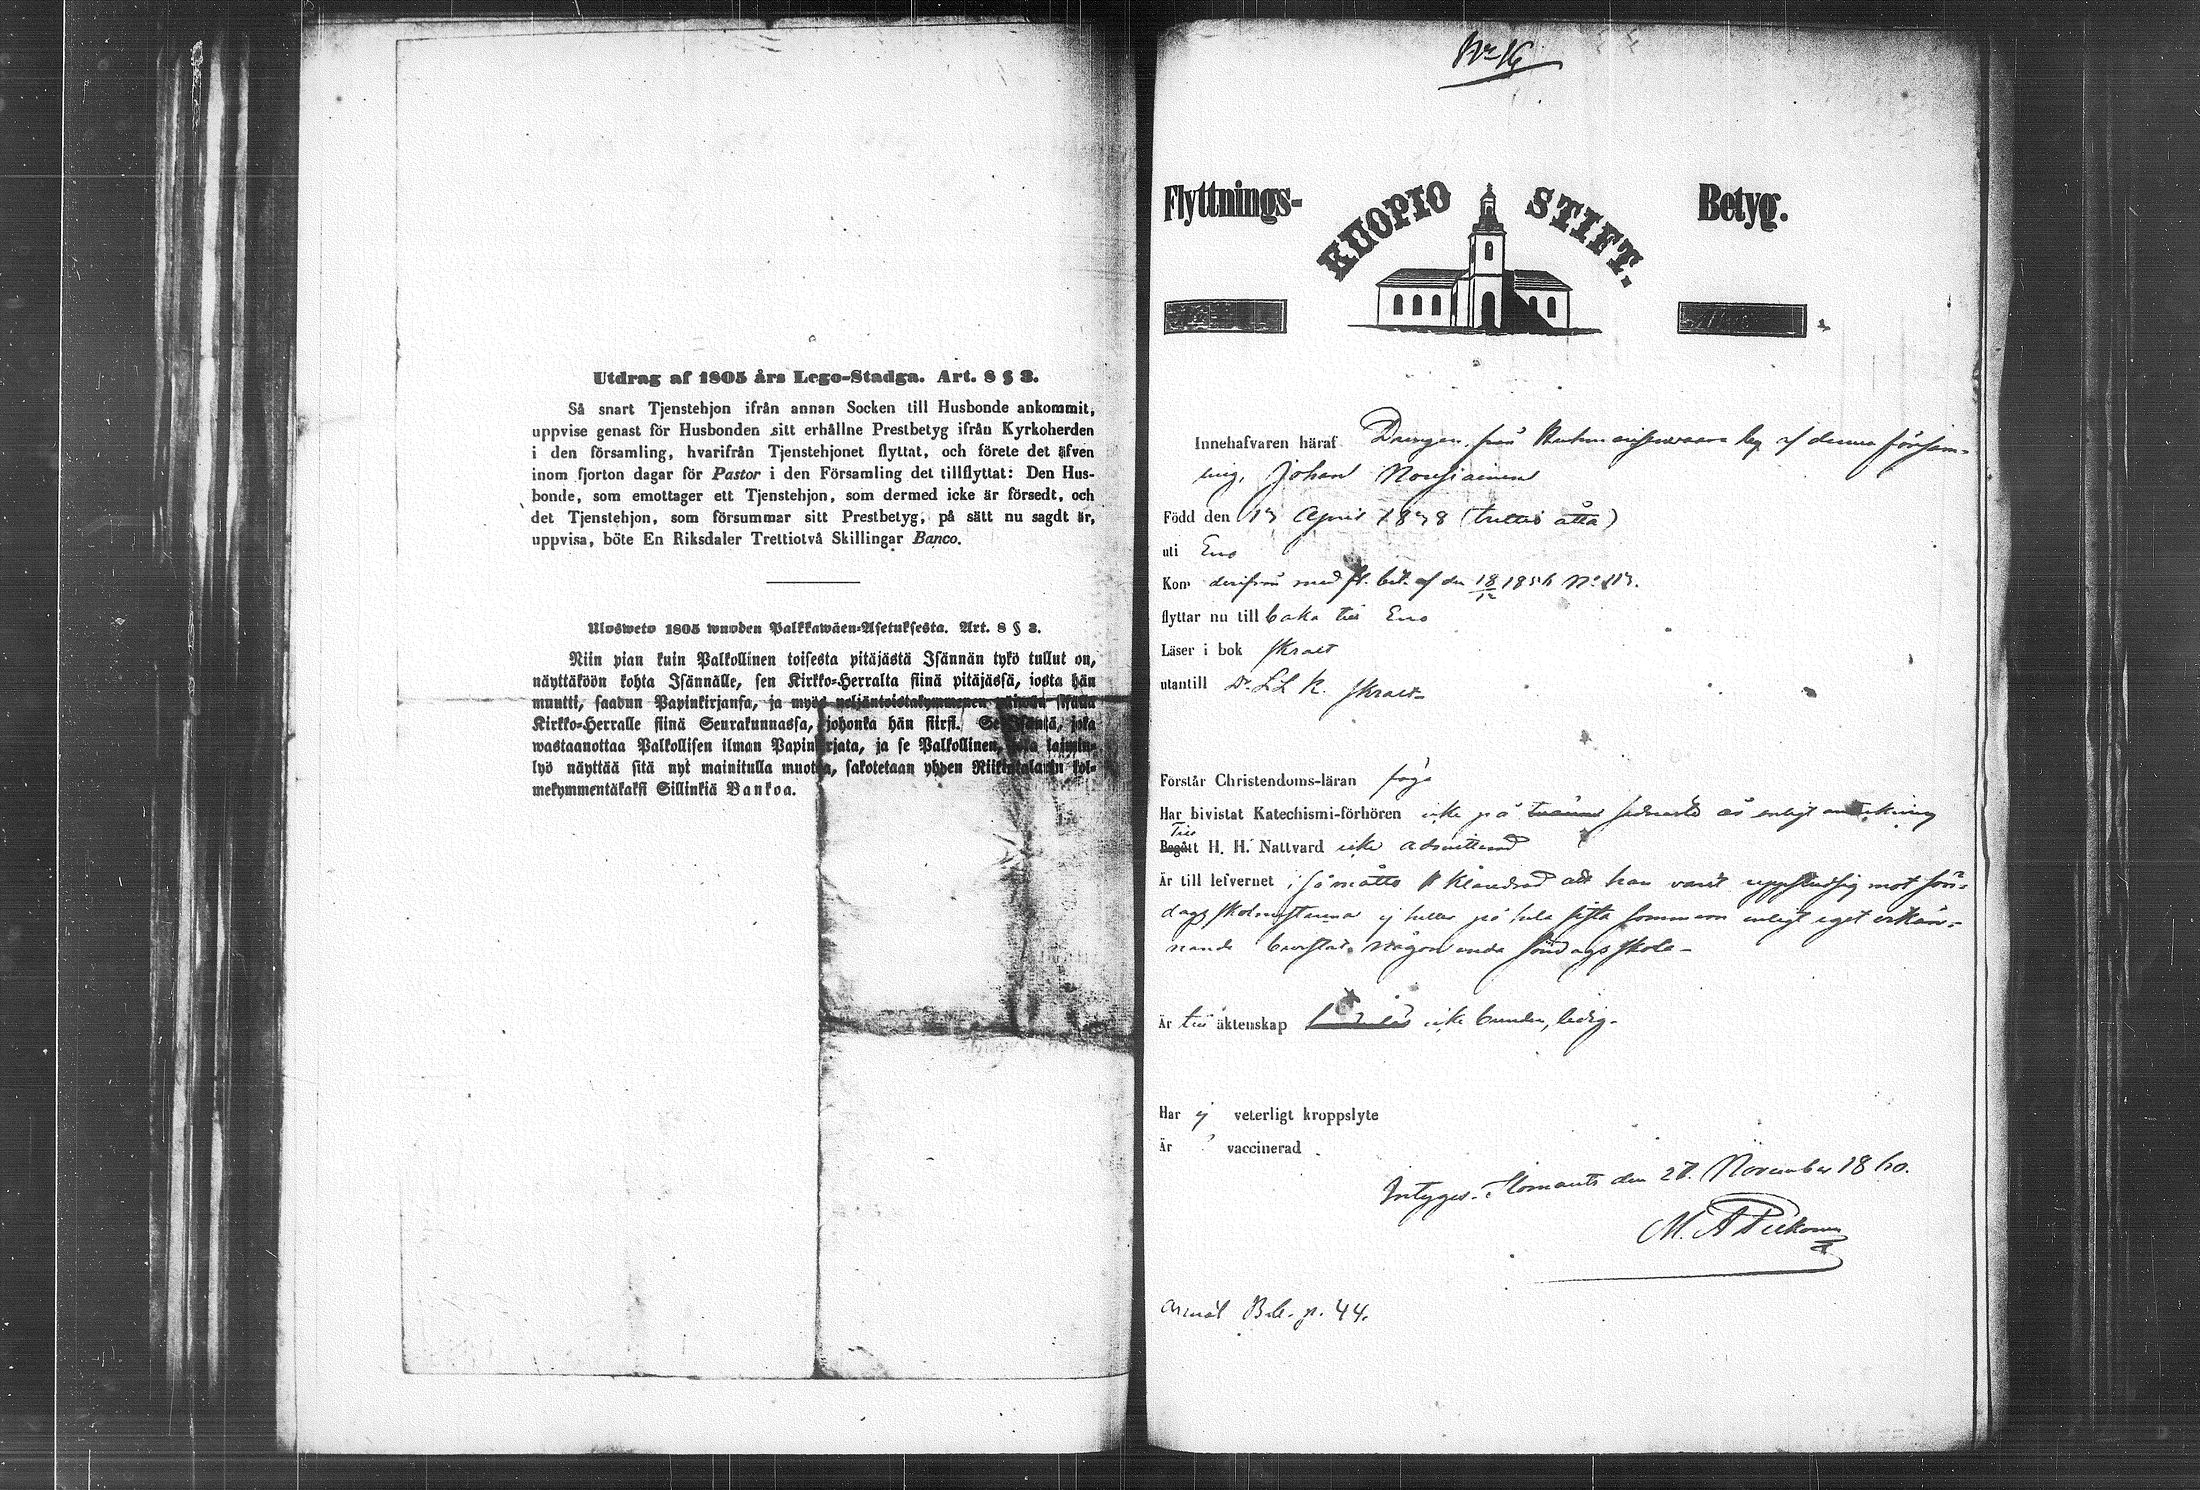 Utdrag af 1805 års Lego-Stadga. Art. 8 § 3.
Så snart Tjenstehjon ifrån annan Socken till Husbonde ankommit,
uppvise genast för Husbonden sitt erhållne Prestbetyg ifrån Kyrkoherden
i den församling, hvarifrån Tjenstehjonet flyttat, och förete det äfven
inom fjorton dagar för Pastor i den Församling det tillflyttat: Den Hus-
bonde, som emottager ett Tjenstehjon, som dermed icke är försedt, och
det Tjenstehjon, som försummar sitt Prestbetyg, på sätt nu sagdt är,
uppvisa, böte En Riksdaler Trettiotvå Skillingar Banco.
Ulosweto 1805 wuoden Palkkawäen-Asetuksesta. Art. 8 § 3.
Niin pian kuin Palkollinen toisesta pitäjästä Isännän tykö tullut on,
näyttäköön kohta Isännälle, sen Kirkko-Herralta siinä pitäjässä, josta hän
muutti, saadun Papinkirjansa, ja myös neljäntoistakymmenen päiwän sisällä
Kirkko-Herralle siinä Seurakunnassa, johonka hän siirsi. Se Isäntä, joka
wastaanottaa Palkollisen ilman Papinkirjata, ja se Palkollinen, joka laimin-
lyö näyttää sitä nyt mainitulla muotoa, sakotetaan yhden Riikintalarin kol-
mekymmentäkaksi Sillinkiä Bankoa.
Nr 16
Flyttnings- KUOPIO STIFT. Betyg.
Innehafvaren häraf Drengen från by af denna försam-
ling, Johan Nousiainen
Född den 17 April 1838 (trettio åtta)
uti Eno
Kom derifrån med fl. bet. af den 18/12 1856 No 117.
flyttar nu till baka till Eno
Läser i bok skralt
utantill D. L. L. K. skralt
Förstår Christendoms-läran föga
Har bivistat Katechismi-förhören icke på sednaste år enligt anteckning
Till
Begått H. H. Nattvard icke admitterad
Är till lefvernet i så måtto klandrad att han varit uppstudsig mot sön-
dagsskolmästarena ej heller på hela sista sommaren enligt eget erkän-
nande bivistat någon enda söndagsskola
Är till äktenskap icke bunden, ledig.
Har ej veterligt kroppslyte
Är vaccinerad
Intygas. Ilomants den 27. November 1860.
M. A. Piekonen
B. p. 44.